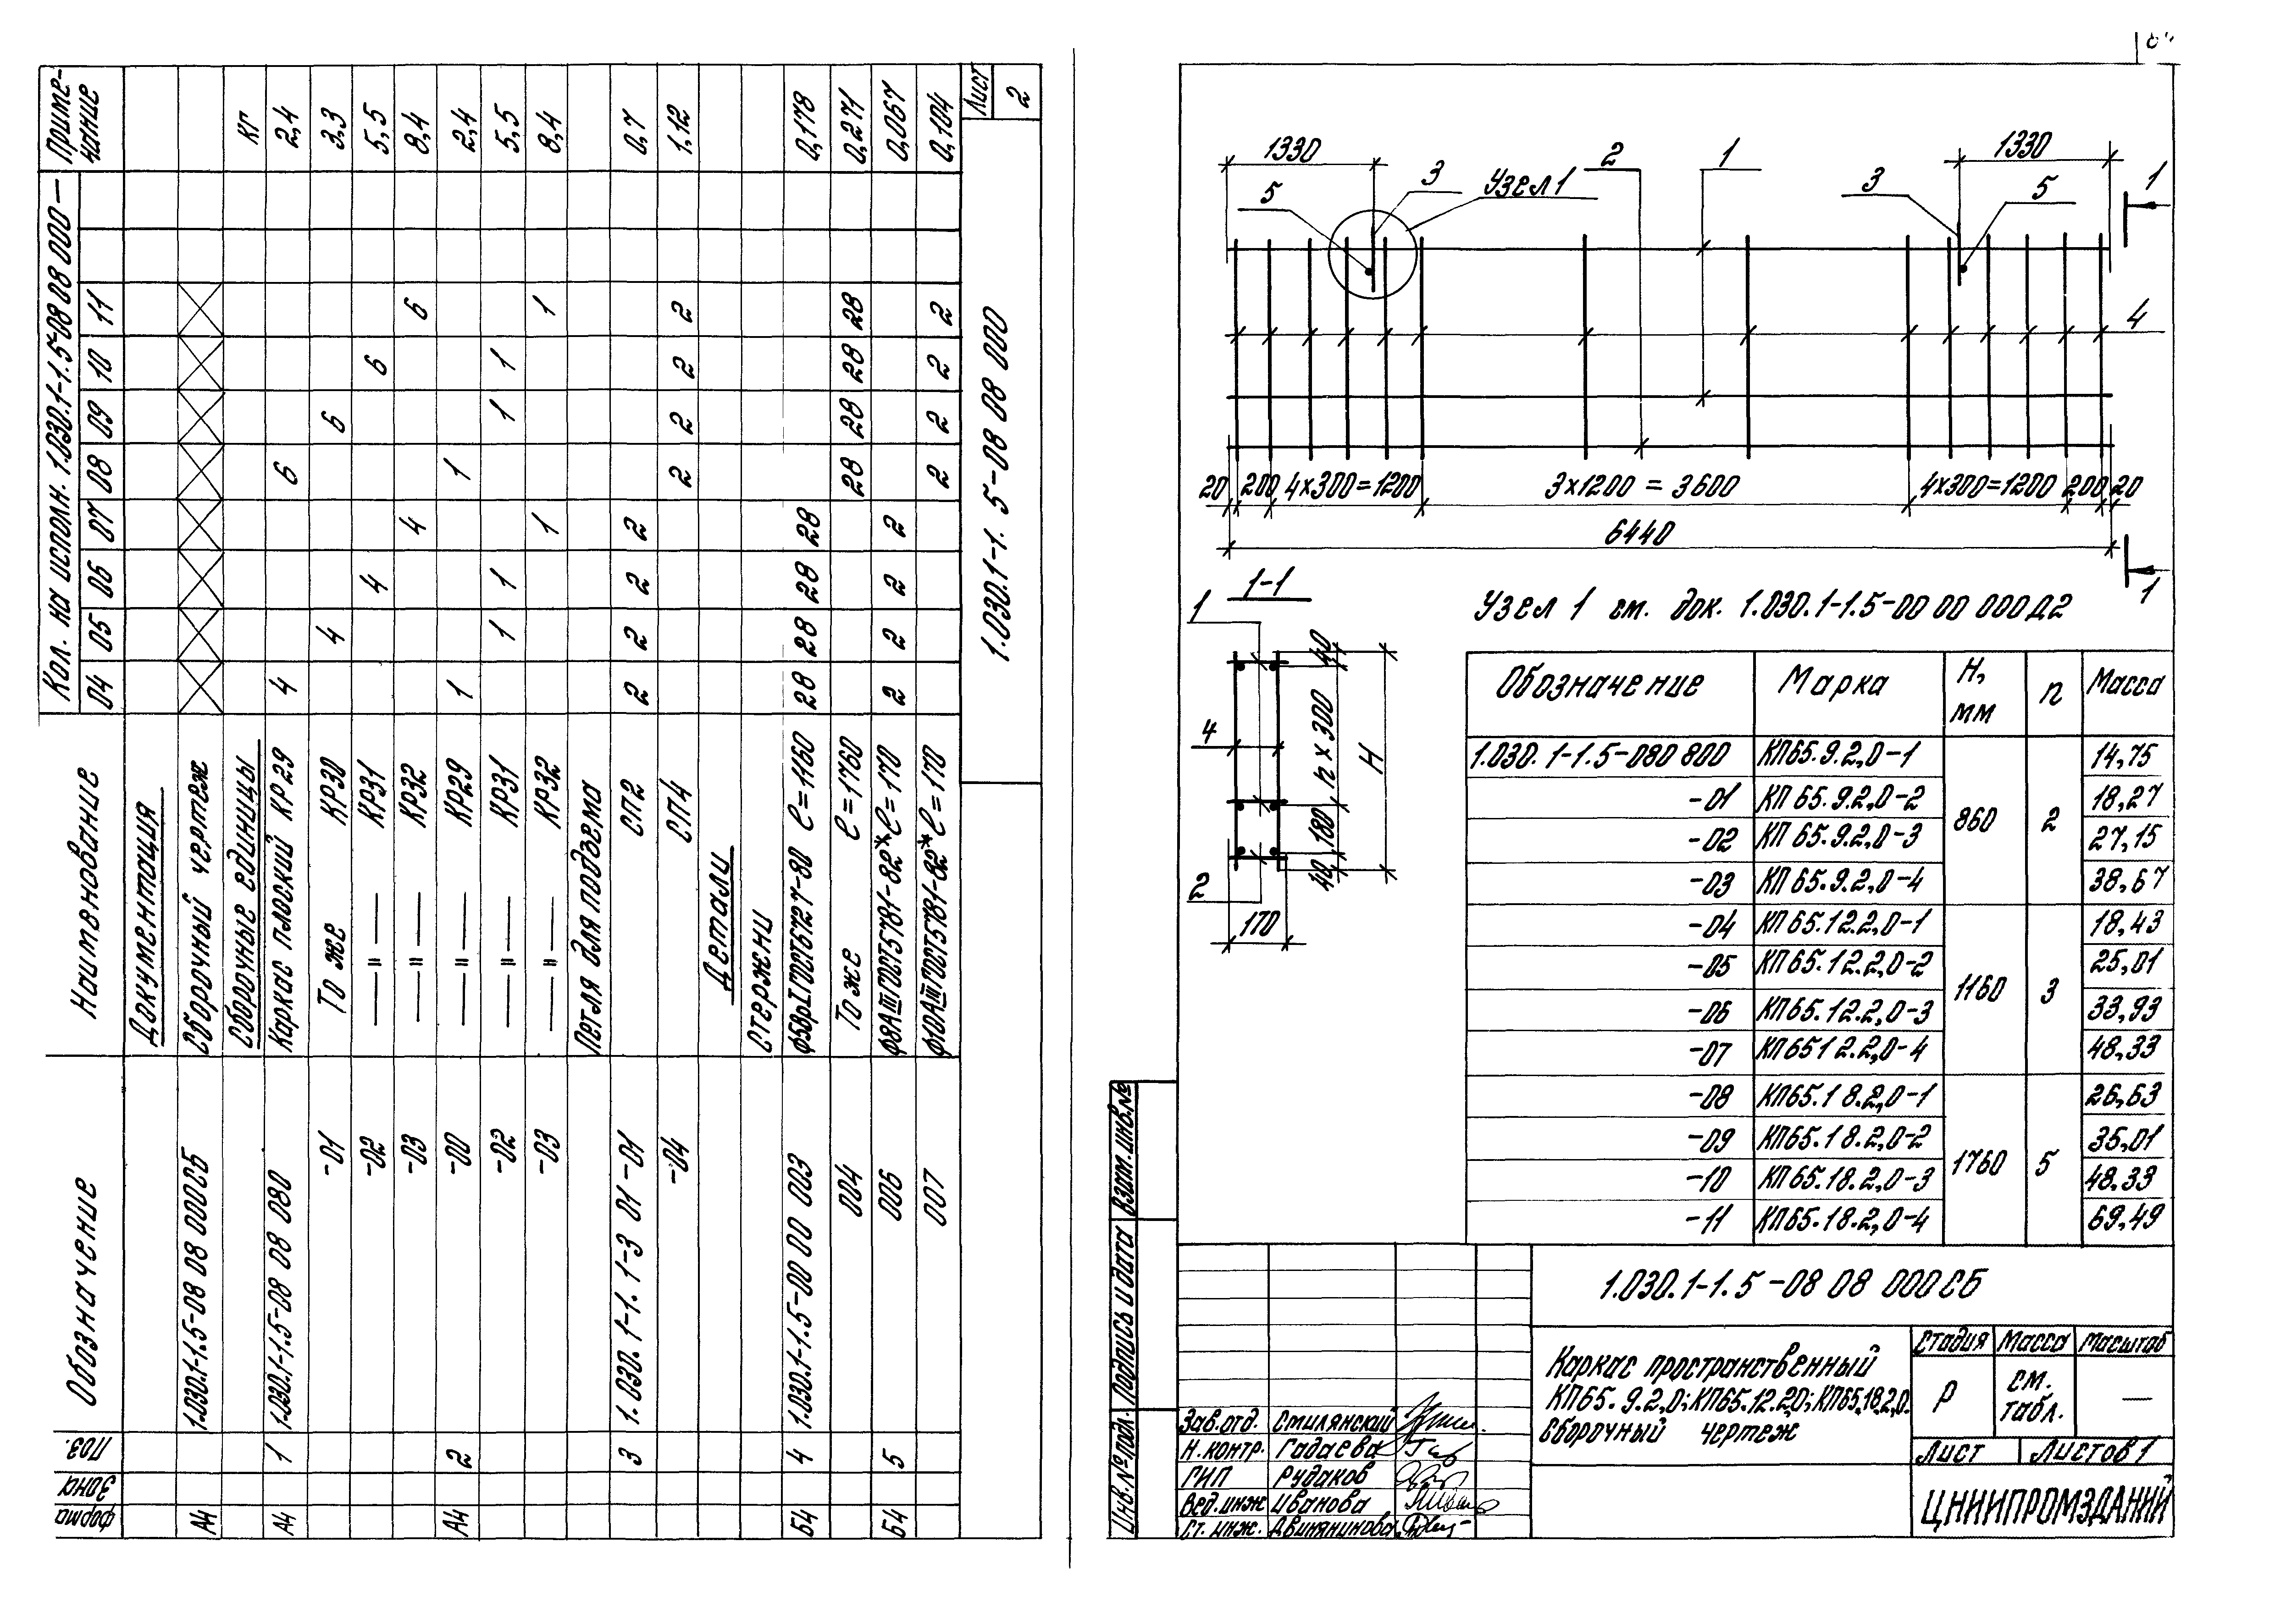 Обозначение
Наименование
Кол. на исполн. 1.030.1-1.5-08 08 000 —
Приме-
чание
форма
Зона
Поз.
04 05 06 07 08 09 10 11
Документация
А4 1.030.1-1.5-08 08 000СБ Сборочный чертеж
Сборочные единицы кг
А4 1 1.030.1-1.5-08 08 080 Каркас плоский КР29 4 6 2,4
-01 То же КР30 4 6 3,3
-02 — " — КР31 4 6 5,5
-03 — " — КР32 4 6 8,4
А4 2 -00 — " — КР29 1 1 2,4
-02 — " — КР31 1 1 1 1 5,5
-03 — " — КР32 1 1 8,4
Петля для подъема
3 1.030.1-1.1-3 01 -01 СП2 2 2 2 2 0,7
-04 СП4 2 2 2 2 1,12
Детали
Стержни
Б4 4 1.030.1-1.5-00 00 003 ф5ВрI ГОСТ6727-80 ℓ=1160 28 28 28 28 0,178
004 То же ℓ=1760 28 28 28 28 0,271
Б4 5 006 ф8АIII ГОСТ5781-82* ℓ=170 2 2 2 2 0,067
007 ф10АIII ГОСТ5781-82* ℓ=170 2 2 2 2 0,104
1.030.1-1.5-08 08 000
Лист
2
1330 2 1 1330
3 Узел 1 3 5 1
5
4
20 200 4х300=1200 3х1200=3600 4х300=1200 200 20
6440
1
1-1
1
Узел 1 см. док. 1.030.1-1.5-00 00 000Д2
40
n х 300
Н
4
180
40
2
170
Обозначение Марка Н, мм n Масса
1.030.1-1.5-080 800 КП65.9.2,0-1 860 2 14,75
-01 КП 65.9.2,0-2 18,27
-02 КП 65.9.2,0-3 27,15
-03 КП 65.9.2,0-4 38,67
-04 КП 65.12.2,0-1 1160 3 18,43
-05 КП 65.12.2,0-2 25,01
-06 КП65.12.2,0-3 33,93
-07 КП6512.2,0-4 48,33
-08 КП65.18.2,0-1 1760 5 26,63
-09 КП65.18.2,0-2 35,01
-10 КП65.18.2,0-3 48,33
-11 КП65.18.2,0-4 69,49
Взам.инв.№
Подпись и дата
Инв.№ подл.
1.030.1-1.5-08 08 000СБ
Каркас пространственный
КП65.9.2,0; КП65.12.2,0; КП65.18.2,0.
Сборочный чертеж
Стадия Масса Масштаб
Р см. табл. —
Лист Листов 1
Зав.отд. Смилянский
Н.контр. Гадаева
ГИП Рудаков
Вед.инж Иванова
Ст. инж. Двинянинова
ЦНИИПРОМЗДАНИЙ